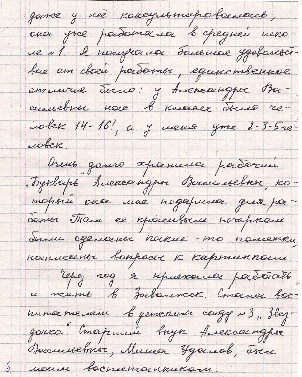 даже у неё консультировалась,
она уже работала в средней шко-
ле №1. Я получала большое удовольст-
вие от своей работы, единственное
отличие было: у Александры Ва-
сильевны нас в классе было че-
ловек 14-16, а у меня уже 2-3-5 че-
ловек.
Очень долго хранила рабочий
"Букварь" Александры Васильевны, ко-
торый она мне подарила для ра-
боты. Там её красивым почерком
были сделаны какие-то пометки
написаны вопросы к картинкам.
Через год я приехала работать
и жить в Заволжск. Стала вос-
питателем в детском саду №3 "Звез-
дочка". Старший внук Александры
Васильевны, Миша Удалов, был
моим воспитанником.